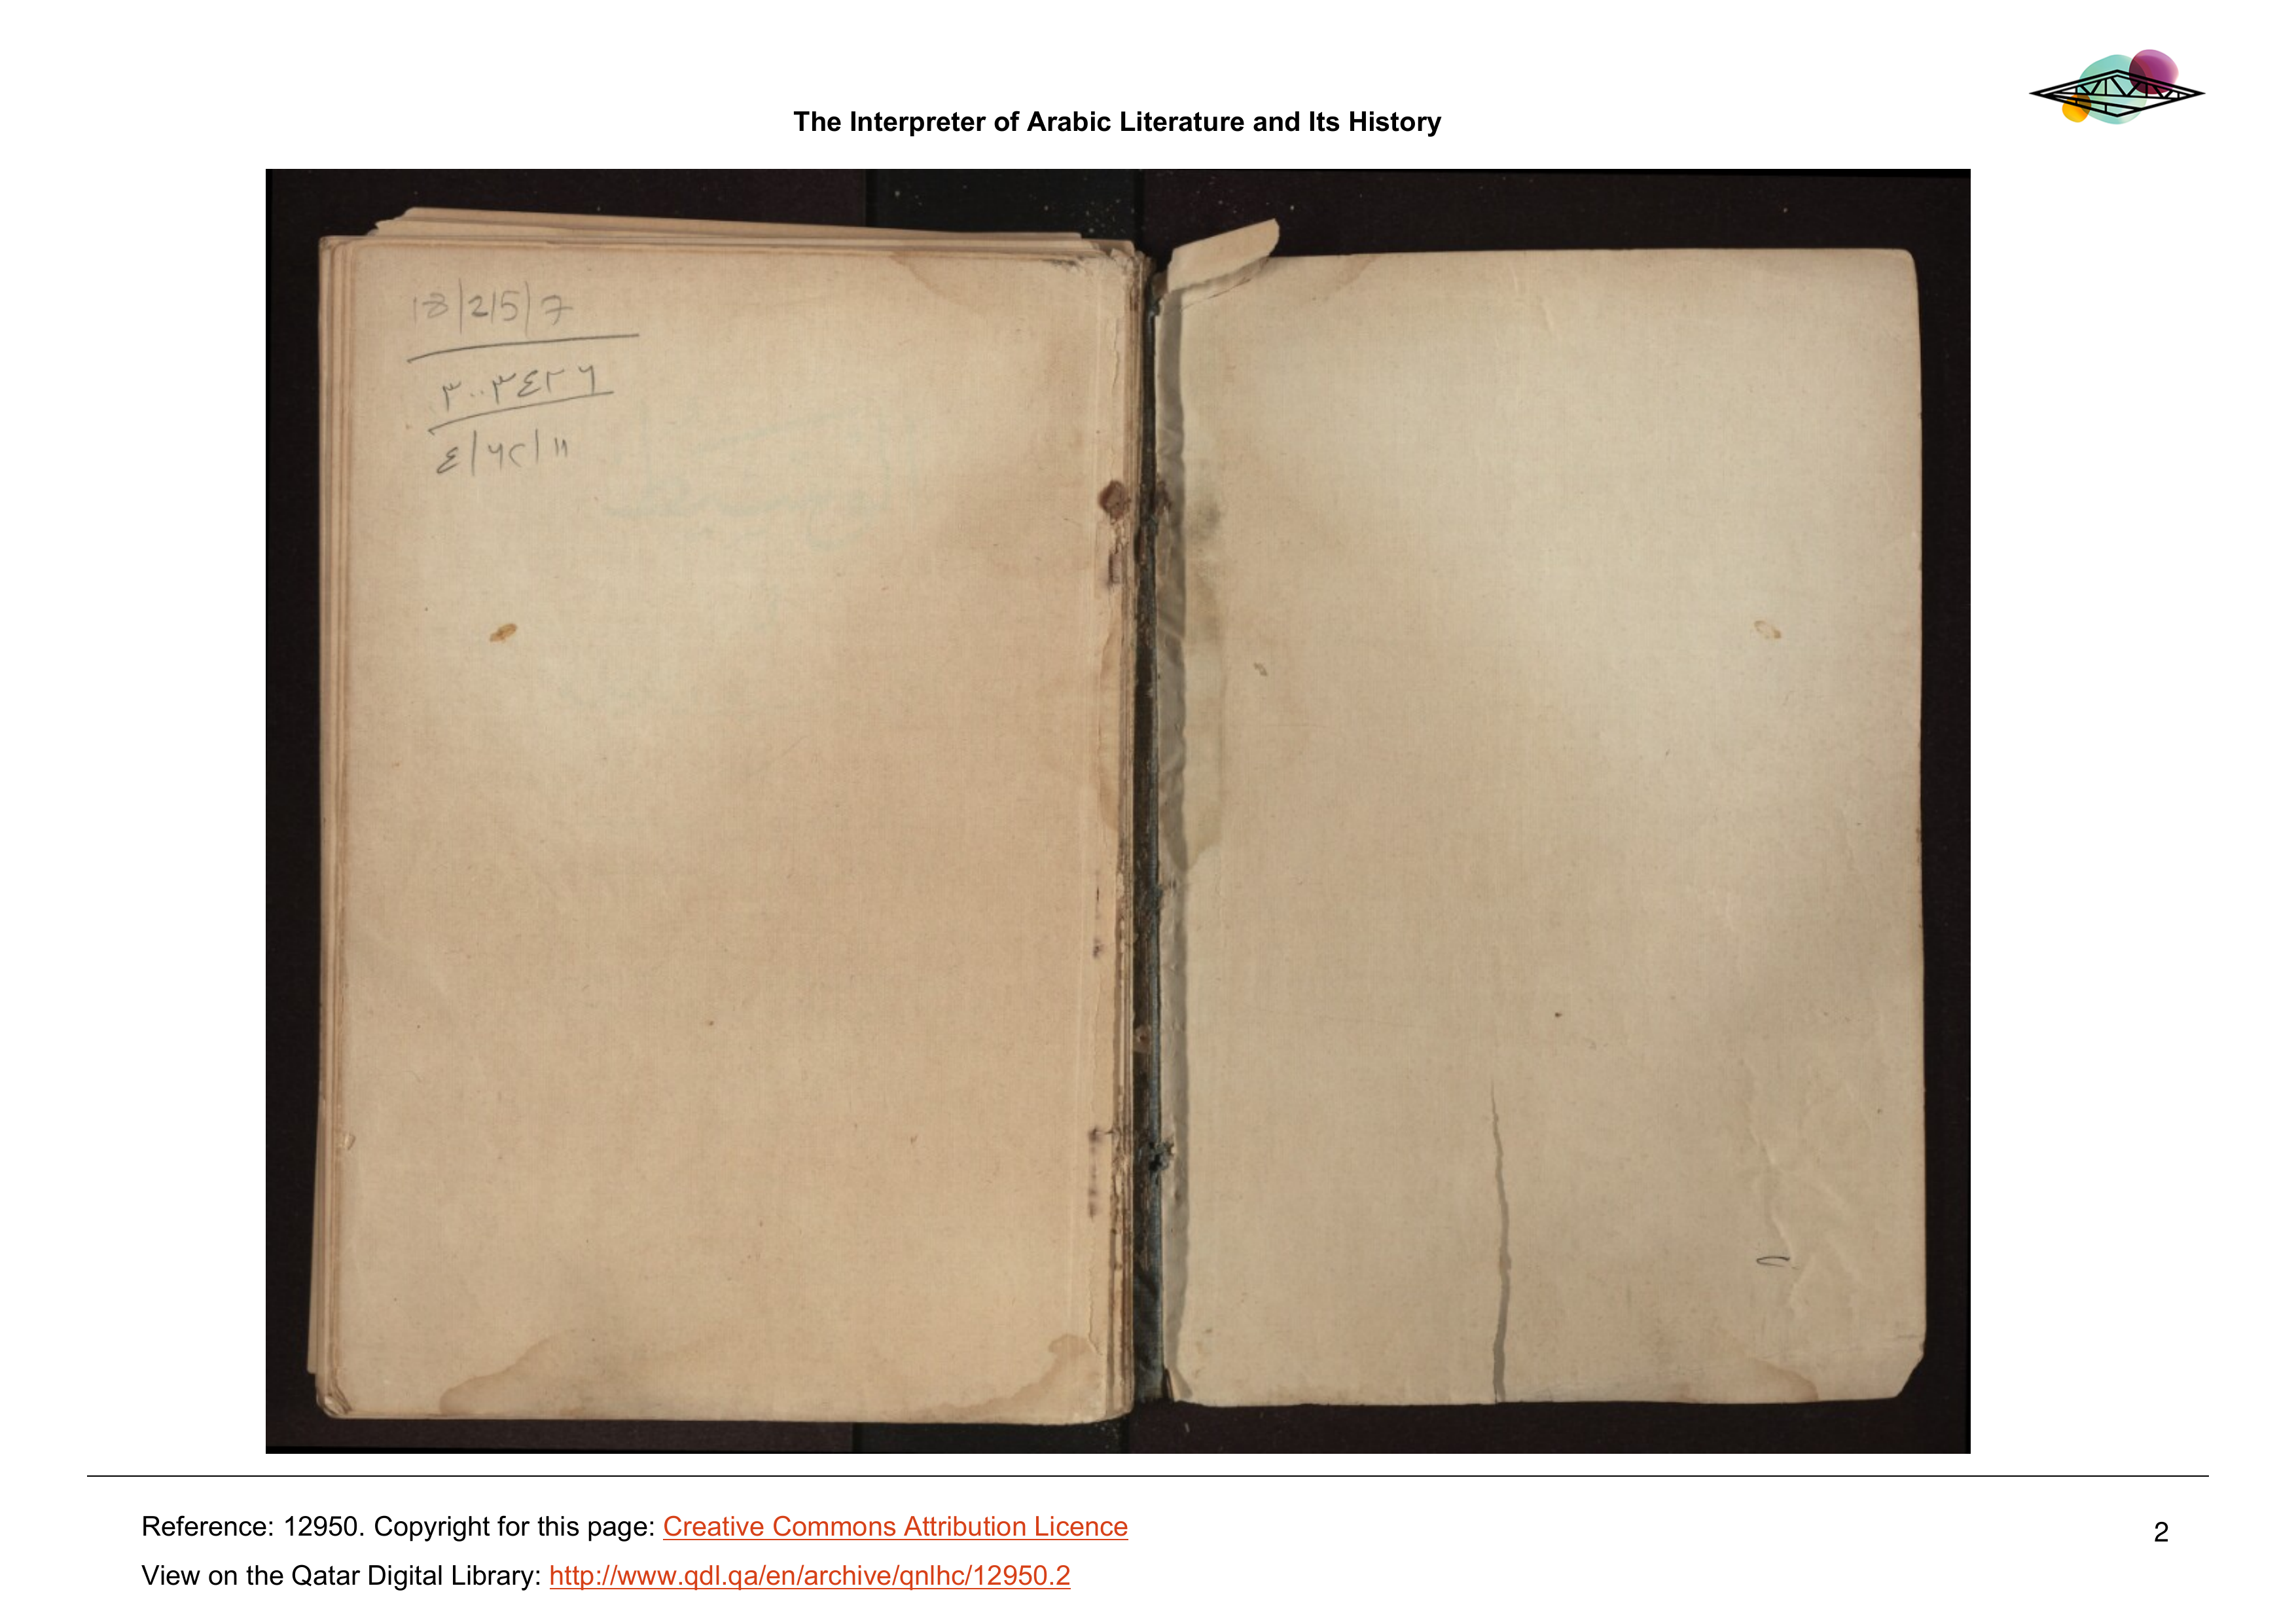 The Interpreter of Arabic Literature and Its History
18/2/5/7
٣٠٠٣٤٢٦
٤/٦٢/١١
Reference: 12950. Copyright for this page: Creative Commons Attribution Licence
2
View on the Qatar Digital Library: http://www.qdl.qa/en/archive/qnlhc/12950.2